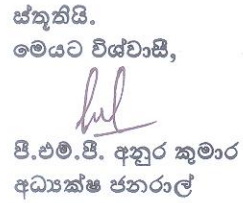 ස්තූතියි.
මෙයට විශ්වාසී,
පී.එම්.පී. අනුර කුමාර
අධ්‍යක්ෂ ජනරාල්